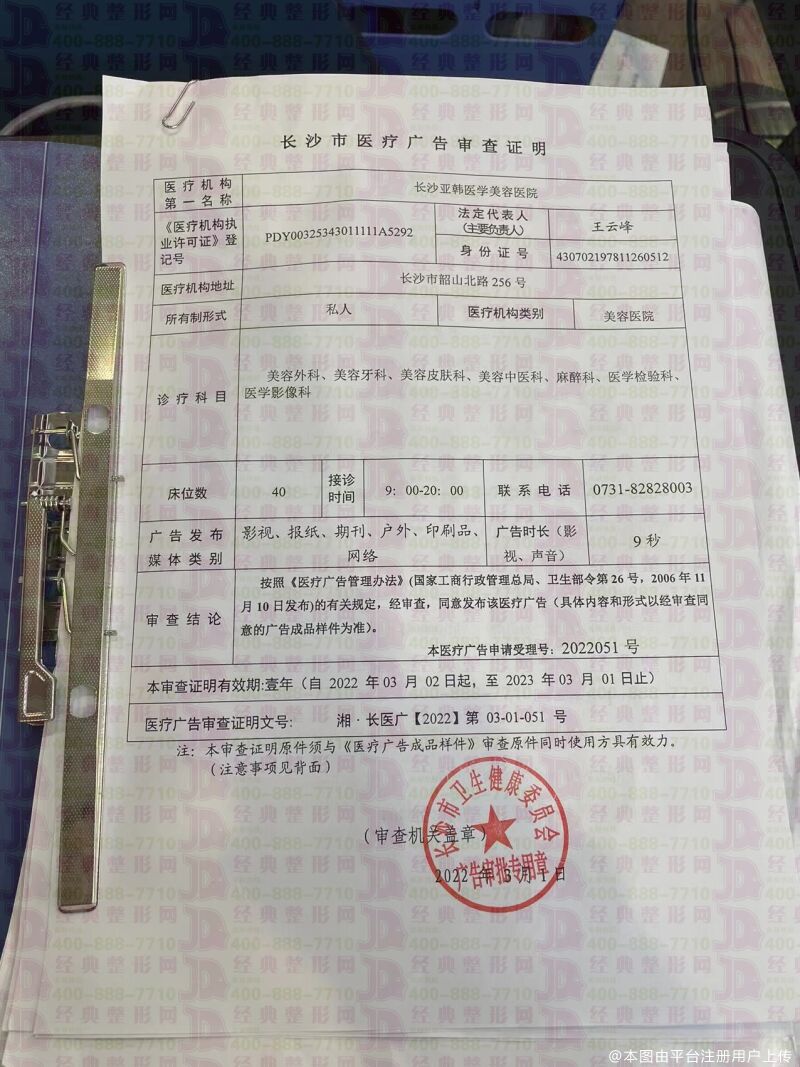 长沙市医疗广告审查证明
医疗机构
第一名称
长沙亚韩医学美容医院
《医疗机构执
业许可证》登
记号
PDY00325343011111A5292
法定代表人
(主要负责人)
王云峰
身份证号
430702197811260512
医疗机构地址
长沙市韶山北路256号
所有制形式
私人
医疗机构类别
美容医院
诊疗科目
美容外科、美容牙科、美容皮肤科、美容中医科、麻醉科、医学检验科、
医学影像科
床位数
40
接诊
时间
9：00-20：00
联系电话
0731-82828003
广告发布
媒体类别
影视、报纸、期刊、户外、印刷品、
网络
广告时长（影
视、声音）
9秒
审查结论
按照《医疗广告管理办法》(国家工商行政管理总局、卫生部令第26号，2006年11
月10日发布)的有关规定，经审查，同意发布该医疗广告（具体内容和形式以经审查同
意的广告成品样件为准）。
本医疗广告申请受理号：2022051号
本审查证明有效期:壹年（自 2022 年 03 月 02日起，至 2023 年 03 月 01日止）
医疗广告审查证明文号: 湘·长医广【2022】第 03-01-051 号
注：本审查证明原件须与《医疗广告成品样件》审查原件同时使用方具有效力。
（注意事项见背面）
（审查机关盖章）
长沙市卫生健康委员会
广告审批专用章
2022 年 3 月 1 日
经典整形网
400-888-7710
@本图由平台注册用户上传